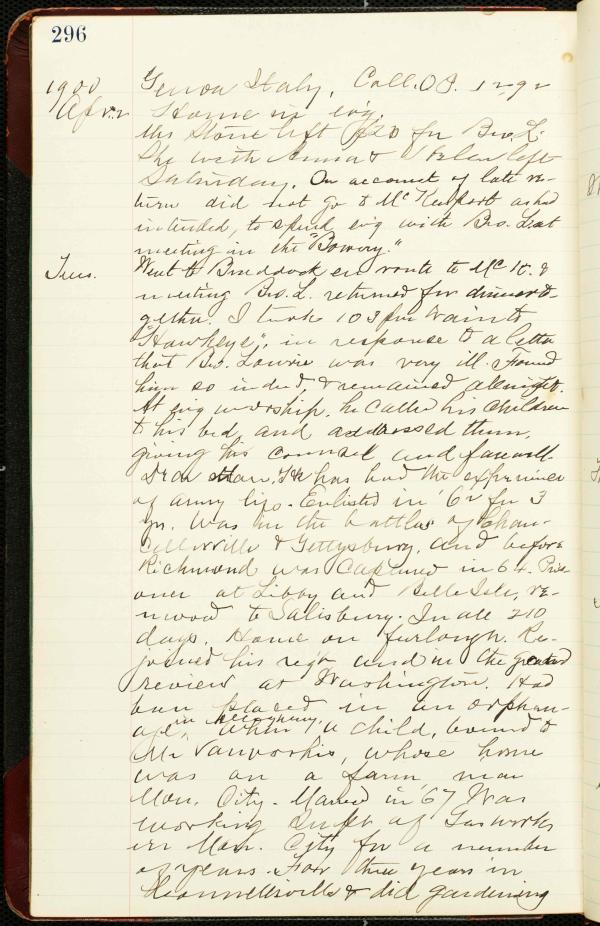 296
1900 Genoa Italy, Coll. O.S. 1292
Apr. 2 Home in ev'g.
Mrs Stone left $20 for Bro. L.
She with Anna & Helen left
Saturday. On account of late re-
turn did not go to McKeesport as had
intended, to spend ev'g with Bro. L. at
meeting in the "Bowery."
Tues. Went to Braddock en route to McK. &
meeting Bro. L. returned for dinner to-
gether. I took 103 pm train to
"Hawkeye", in response to a letter
that Bro. Lowrie was very ill. Found
him so indeed, & remained all night.
At ev'g worship, he called his children
to his bed, and addressed them,
giving his counsel and farewell.
Dear Man. He has had the experience
of army life. Enlisted in '62 for 3
yrs. Was in the battles of Chan-
cellorville & Gettysburg, and before
Richmond was captured in 64. Pris-
oner at Libby and Belle Isle, re-
moved to Salisbury. In all 210
days. Home on furlough. Re-
joined his reg't and in the grand
review at Washington. Had
been placed in an orphan-
age, in Allegheny, when a child, bound to
Mr Vanvorhis, whose home
was on a farm near
Mon. City. Married in '67 Was
working Supt of Gas works
in Mon. City for a number
of years. For three years in
Connellsville & did gardening